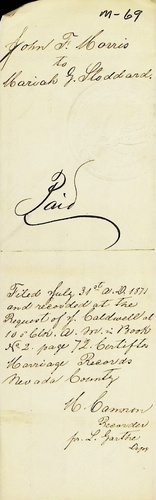 M-69
John T. Morris
to
Mariah G. Stoddard.
Paid
Filed July 31st A.D. 1871
and recorded at the
Request of J. Caldwell at
10.5 Clk. A. M. in Book
No 2. page 72. Certifts
Marriage Records
Nevada County
H. Cameron
Recorder
pr. L. Garthe
Depy